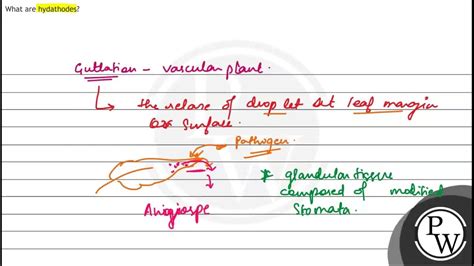 What are hydathodes?
Guttation - vascular plant.
↳ the relase of drop let at leaf margin
or surface.
Pathogen
* glandular tissue
composed of modified
Stomata.
Angiospe
PW